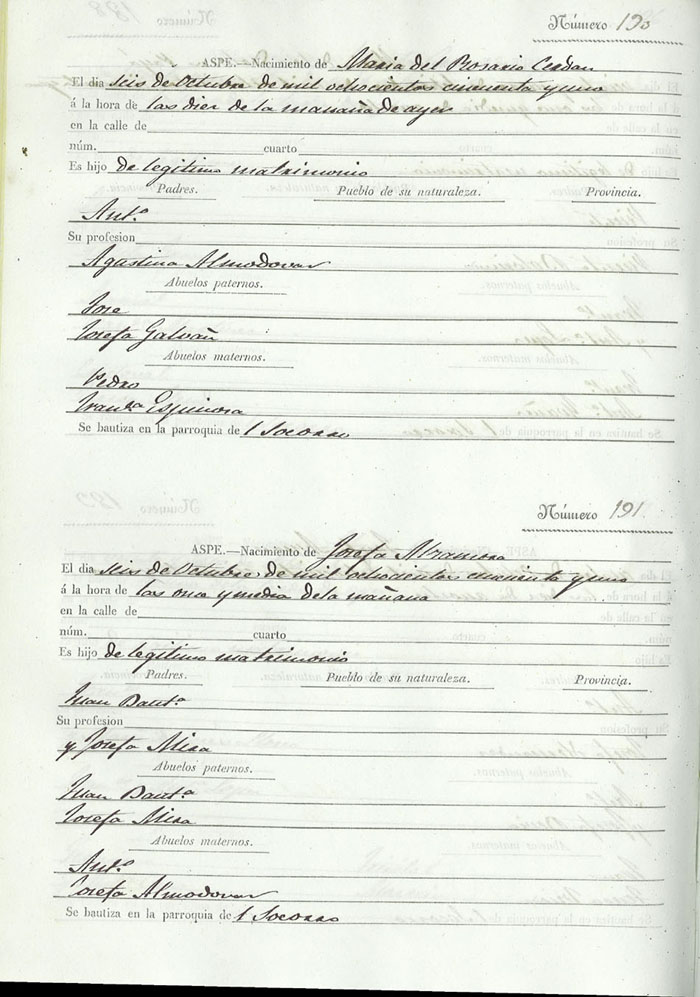 Número 190
ASPE.—Nacimiento de Maria del Rosario Cerdan
El dia seis de Octubre de mil ochocientos cincuenta y uno
á la hora de las diez de la mañana de ayer
en la calle de
núm. cuarto
Es hijo de legitimo matrimonio
Padres. Pueblo de su naturaleza. Provincia.
Antº
Su profesion
Agustina Almodovar
Abuelos paternos.
Jose
Josefa Galvañ
Abuelos maternos.
Pedro
Franca Espinosa
Se bautiza en la parroquia de l Socorro
Número 191
ASPE.—Nacimiento de Josefa
El dia seis de Octubre de mil ochocientos cincuenta y uno
á la hora de las once y media de la mañana
en la calle de
núm. cuarto
Es hijo de legitimo matrimonio
Padres. Pueblo de su naturaleza. Provincia.
Juan Bautª
Su profesion
y Josefa Mira
Abuelos paternos.
Juan Bautª
Josefa Mira
Abuelos maternos.
Antº
Josefa Almodovar
Se bautiza en la parroquia de l Socorro